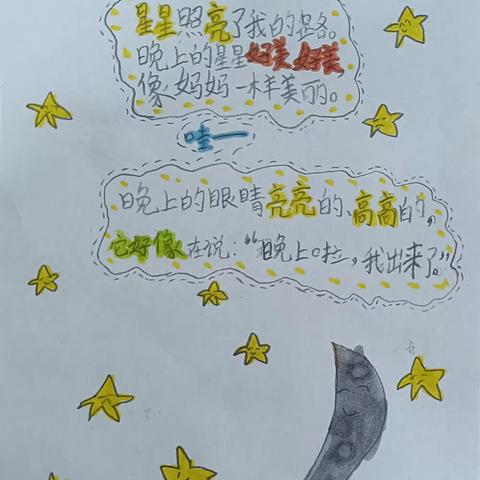 星星照亮了我的路。
晚上的星星好美好美,
像妈妈一样美丽的。
哇一
晚上的眼睛亮亮的、高高的,
它好像在说:“晚上啦,我出来了。”